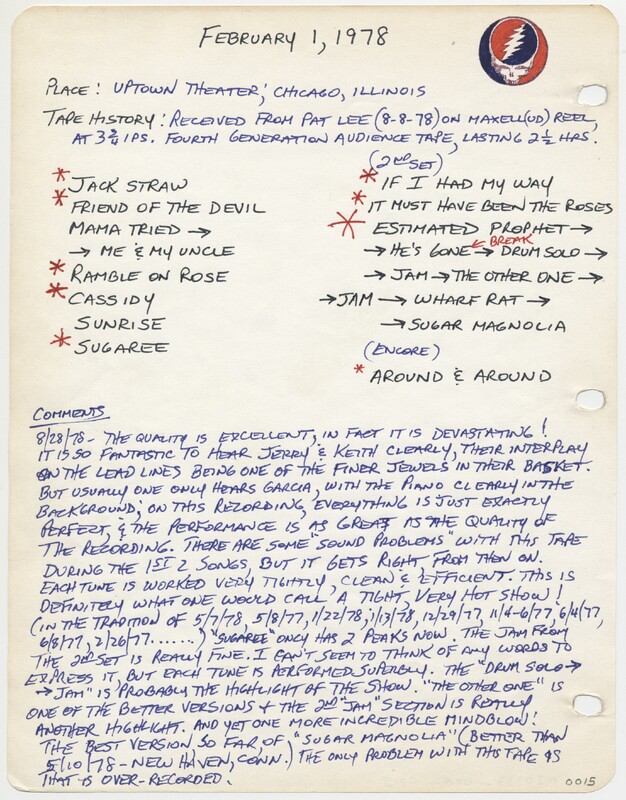 FEBRUARY 1, 1978
PLACE: UPTOWN THEATER, CHICAGO, ILLINOIS
TAPE HISTORY: RECEIVED FROM PAT LEE (8-8-78) ON MAXELL (UD) REEL,
AT 3 3/4 IPS. FOURTH GENERATION AUDIENCE TAPE, LASTING 2 1/2 HRS.
* JACK STRAW
* FRIEND OF THE DEVIL
MAMA TRIED →
→ ME & MY UNCLE
* RAMBLE ON ROSE
* CASSIDY
SUNRISE
* SUGAREE
(2ND SET)
* IF I HAD MY WAY
* IT MUST HAVE BEEN THE ROSES
* ESTIMATED PROPHET →
→ HE'S GONE → DRUM SOLO →
← BREAK
→ JAM → THE OTHER ONE →
→ JAM → WHARF RAT →
→ SUGAR MAGNOLIA
(ENCORE)
* AROUND & AROUND
COMMENTS
8/28/78 - THE QUALITY IS EXCELLENT, IN FACT IT IS DEVASTATING!
IT IS SO FANTASTIC TO HEAR JERRY & KEITH CLEARLY, THEIR INTERPLAY
ON THE LEAD LINES BEING ONE OF THE FINER JEWELS IN THEIR BASKET.
BUT USUALLY ONE ONLY HEARS GARCIA, WITH THE PIANO CLEARLY IN THE
BACKGROUND; ON THIS RECORDING, EVERYTHING IS JUST EXACTLY
PERFECT, & THE PERFORMANCE IS AS GREAT AS THE QUALITY OF
THE RECORDING. THERE ARE SOME "SOUND PROBLEMS" WITH THIS TAPE
DURING THE 1ST 2 SONGS, BUT IT GETS RIGHT FROM THEN ON.
EACH TUNE IS WORKED VERY TIGHTLY, CLEAN & EFFICIENT. THIS IS
DEFINITELY WHAT ONE WOULD CALL A TIGHT, VERY HOT SHOW!
(IN THE TRADITION OF 5/7/78, 5/8/77, 1/22/78, 1/13/78, 12/29/77, 11/4-6/77, 6/4/77,
6/8/77, 2/26/77......) "SUGAREE" ONLY HAS 2 PEAKS NOW. THE JAM FROM
THE 2ND SET IS REALLY FINE. I CAN'T SEEM TO THINK OF ANY WORDS TO
EXPRESS IT, BUT EACH TUNE IS PERFORMED SUPERBLY. THE "DRUM SOLO →
→ JAM" IS PROBABLY THE HIGHLIGHT OF THE SHOW. "THE OTHER ONE" IS
ONE OF THE BETTER VERSIONS & THE 2ND "JAM" SECTION IS REALLY
ANOTHER HIGHLIGHT. AND YET ONE MORE INCREDIBLE MINDBLOW!
THE BEST VERSION, SO FAR, OF "SUGAR MAGNOLIA" (BETTER THAN
5/10/78 - NEW HAVEN, CONN.) THE ONLY PROBLEM WITH THIS TAPE IS
THAT IS OVER-RECORDED.
0015